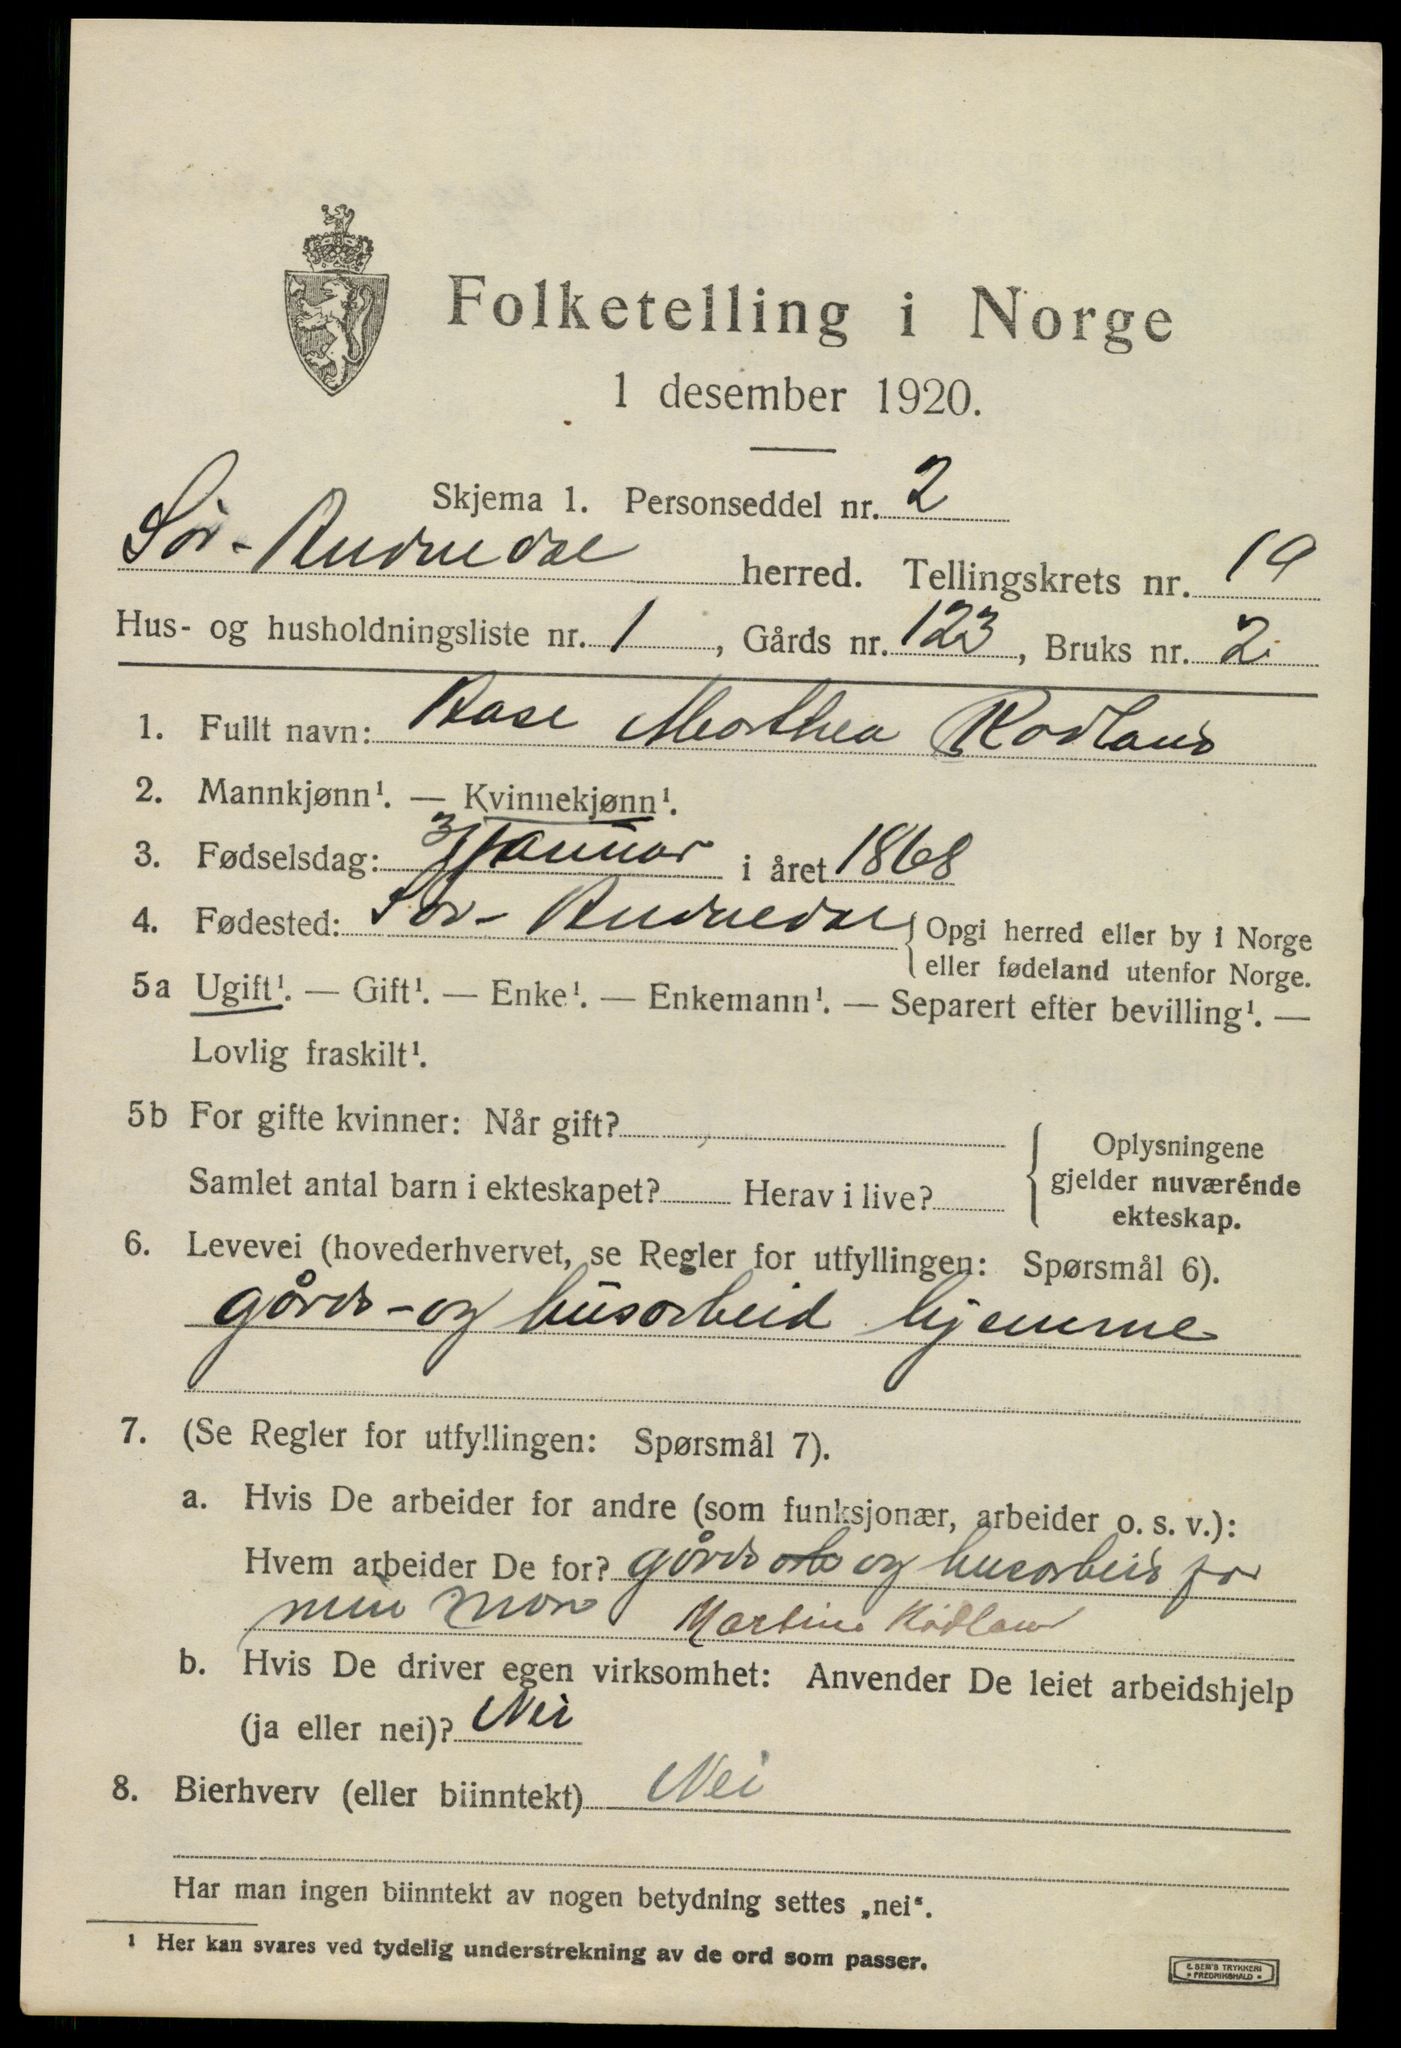 Folketelling i Norge
1 desember 1920.
Skjema 1. Personseddel nr. 2
Sør-Audnedal herred. Tellingskrets nr. 19
Hus- og husholdningsliste nr. 1, Gårds nr. 123, Bruks nr. 2
1. Fullt navn: Aase Marthea Rødland
2. Mannkjønn¹. — Kvinnekjønn¹.
3. Fødselsdag: 3 januar i året 1868
4. Fødested: Sør-Audnedal { Opgi herred eller by i Norge
eller fødeland utenfor Norge.
5a Ugift¹. — Gift¹. — Enke¹. — Enkemann¹. — Separert efter bevilling¹. —
Lovlig fraskilt¹.
5b For gifte kvinner: Når gift?
Samlet antal barn i ekteskapet? Herav i live?
Oplysningene
gjelder nuværende
ekteskap.
6. Levevei (hovederhvervet, se Regler for utfyllingen: Spørsmål 6).
gårds- og husarbeid hjemme
7. (Se Regler for utfyllingen: Spørsmål 7).
a. Hvis De arbeider for andre (som funksjonær, arbeider o. s. v.):
Hvem arbeider De for? gårds og husarbeid for
min mor Martine Rødland
b. Hvis De driver egen virksomhet: Anvender De leiet arbeidshjelp
(ja eller nei)? Nei
8. Bierhverv (eller biinntekt) Nei
Har man ingen biinntekt av nogen betydning settes „nei“.
¹ Her kan svares ved tydelig understrekning av de ord som passer.
E. SEM'S TRYKKERI
• FREDRIKSHALD •